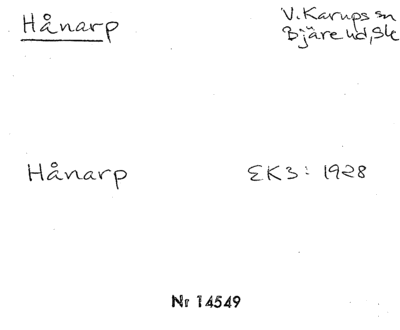 Hånarp
V. Karups sn
Bjäre hd, Sk
Hånarp
EK3: 1928
Nr 14549